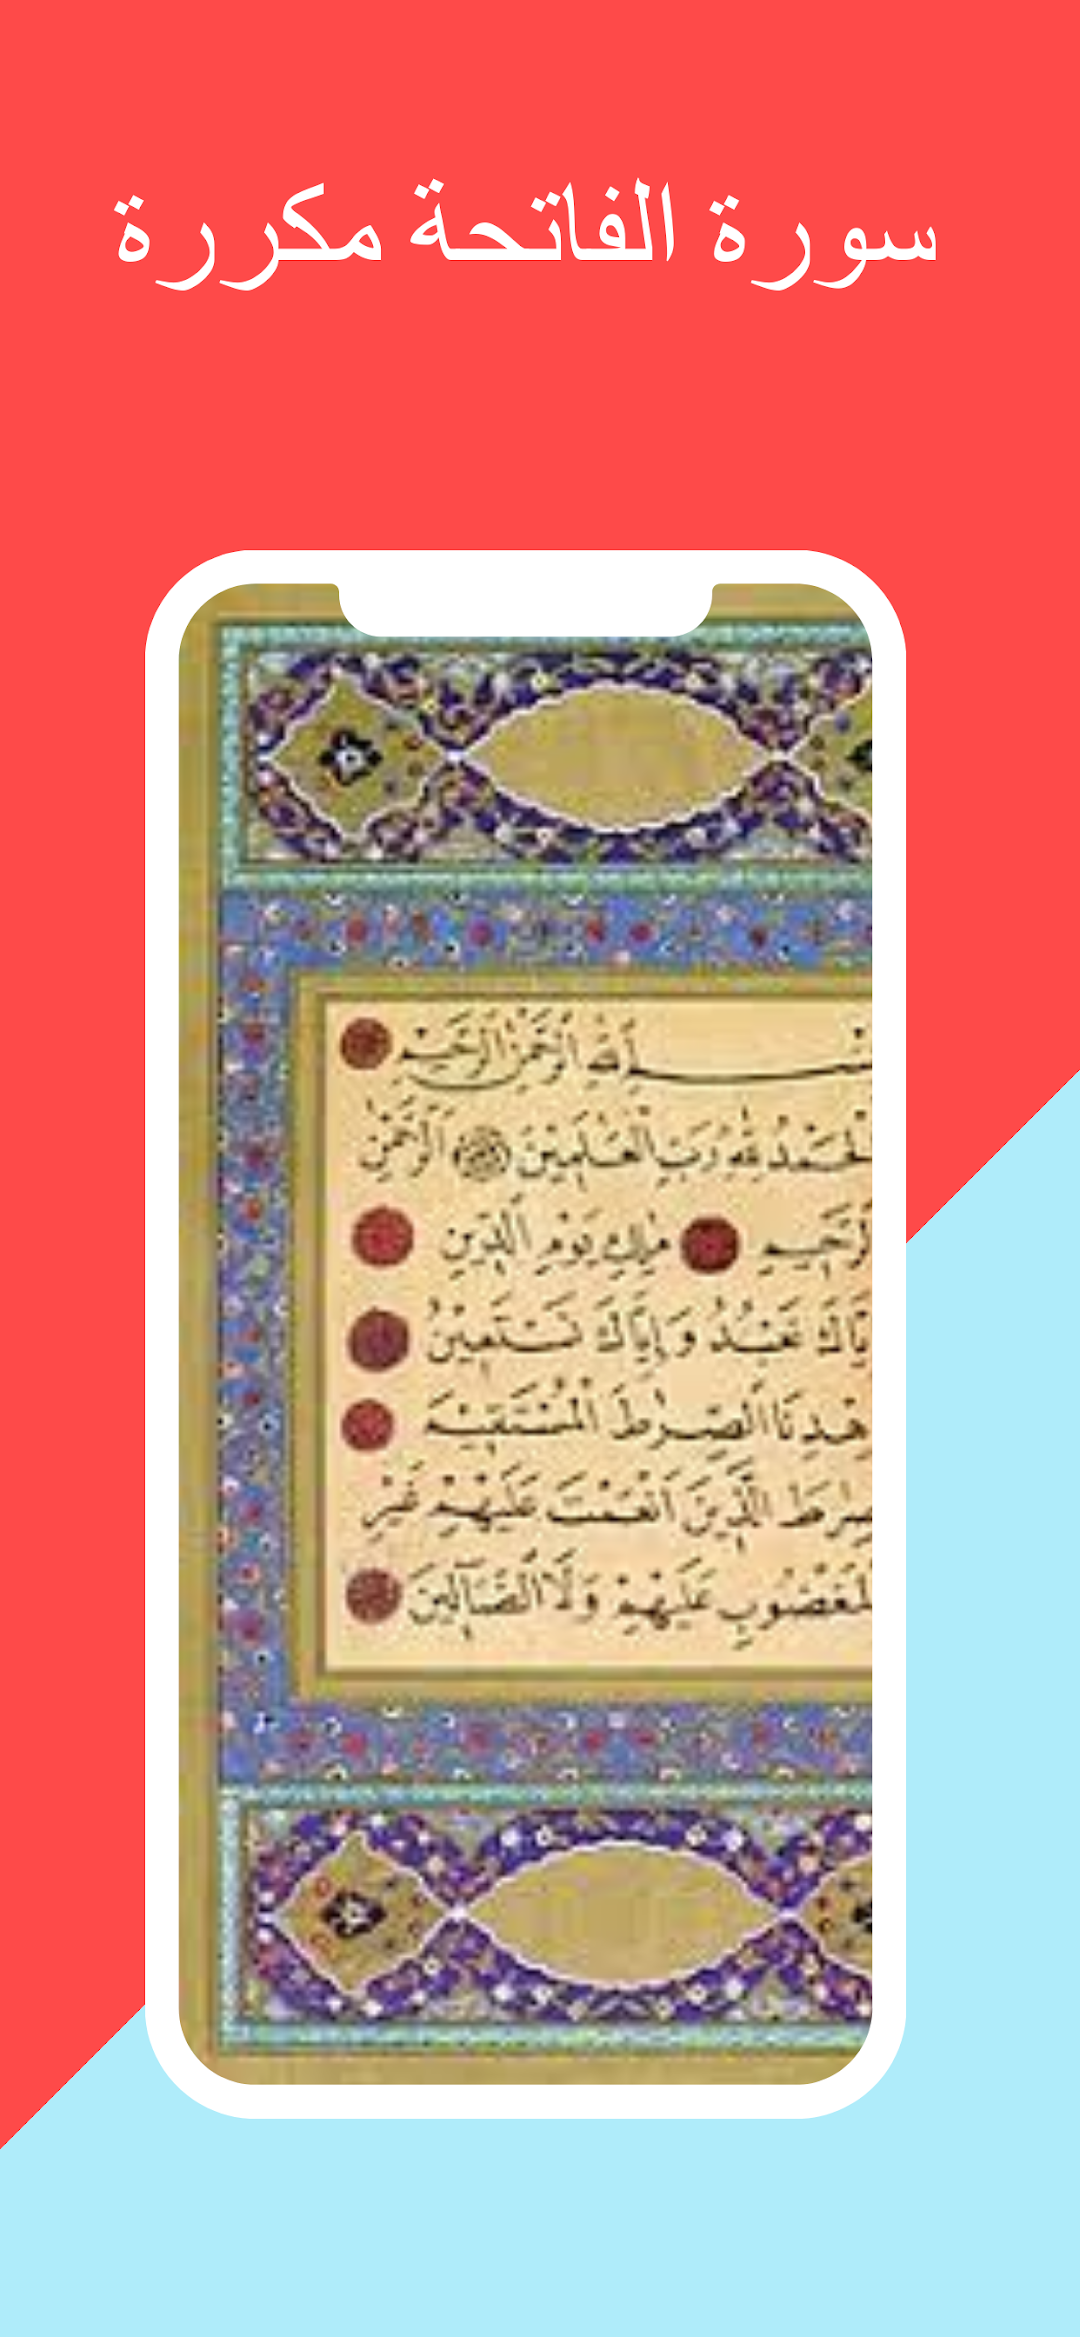 سورة الفاتحة مكررة
بِسْمِ اللَّهِ الرَّحْمَنِ الرَّحِيمِ
الْحَمْدُ لِلَّهِ رَبِّ الْعَالَمِينَ الرَّحْمَنِ
الرَّحِيمِ مَلِكِ يَوْمِ الدِّينِ
إِيَّاكَ نَعْبُدُ وَإِيَّاكَ نَسْتَعِينُ
اهْدِنَا الصِّرَاطَ الْمُسْتَقِيمَ
صِرَاطَ الَّذِينَ أَنْعَمْتَ عَلَيْهِمْ غَيْرِ
الْمَغْضُوبِ عَلَيْهِمْ وَلَا الضَّالِّينَ